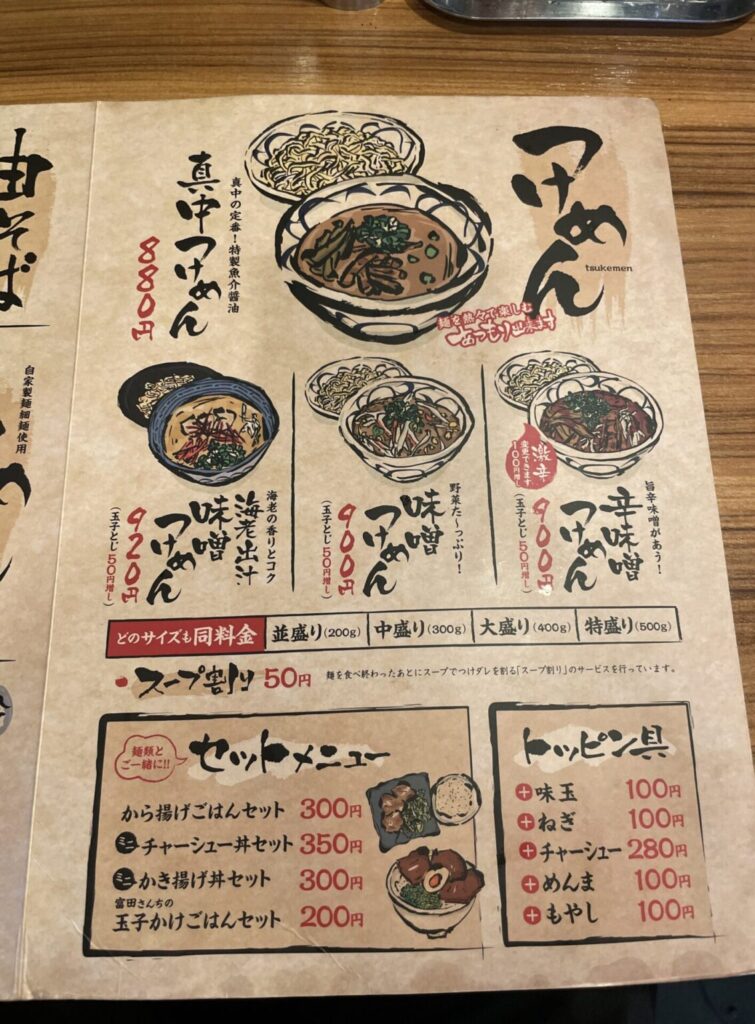 つけめん
tsukemen
麺を熱々で楽しむ
あつもり出来ます
真中の定番!特製魚介醤油
真中つけめん
880円
旨辛味噌があう!
辛味噌
つけめん
900円
(玉子とじ50円増し)
激辛
変更できます
100円増し
野菜た〜っぷり!
味噌
つけめん
900円
(玉子とじ50円増し)
海老の香りとコク
海老出汁
味噌
つけめん
920円
(玉子とじ50円増し)
どのサイズも同料金 並盛り(200g) 中盛り(300g) 大盛り(400g) 特盛り(500g)
スープ割り 50円 麺を食べ終わったあとにスープでつけダレを割る「スープ割り」のサービスを行っています。
麺類と
ご一緒に!!
セットメニュー
から揚げごはんセット 300円
ミニチャーシュー丼セット 350円
ミニかき揚げ丼セット 300円
富田さんちの
玉子かけごはんセット 200円
トッピン具
+味玉 100円
+ねぎ 100円
+チャーシュー 280円
+めんま 100円
+もやし 100円
油そば
自家製麺細麺使用